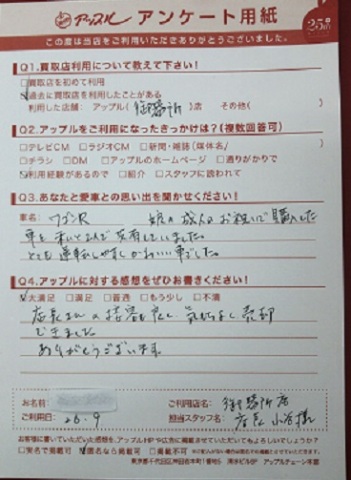 アップル アンケート用紙
25周年
この度は当店をご利用いただきありがとうございました。
Q1.買取店利用について教えて下さい!
□買取店を初めて利用
☑過去に買取店を利用したことがある
利用した店舗: アップル(御器所)店 その他( )
Q2.アップルをご利用になったきっかけは?(複数回答可)
□テレビCM □ラジオCM □新聞・雑誌(媒体名/ )
□チラシ □DM □アップルのホームページ □通りがかりで
☑利用経験があるので □紹介 □スタッフに誘われて
Q3.あなたと愛車との思い出を聞かせください!
車名: ワゴンR 娘の成人のお祝いで購入した
車を
とても運転しやすくかわいい車でした。
Q4.アップルに対する感想をぜひお書きください!
☑大満足 □満足 □普通 □もう少し □不満
店長さんの接客も良く気持よく売却
できました
ありがとうございます。
お名前:
ご利用店名: 御器所店
ご利用日: 26.9
担当スタッフ名: 店長 小谷様
お客様に書いていただいた感想を、アップルHPや広告に掲載させていただいてもよろしいでしょうか?
□実名で掲載可 ☑匿名なら掲載可 □掲載不可
東京都千代田区神田佐木町1番地5 アップルチェーン本部